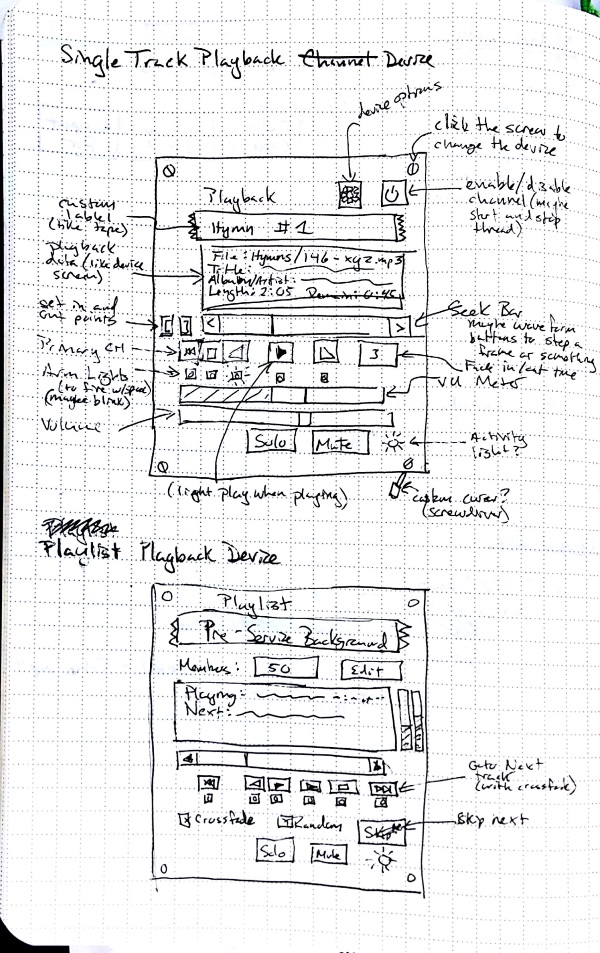 Single Track Playback Channel Device
device options
click the screw to
change the device
Playback
enable/disable
channel (maybe
start and stop
thread)
custom
label
(like tape)
Hymn #1
playback
data (like device
screen)
File: Hymns/146-xyz.mp3
Title:
Album/Artist:
Length: 2:05 Remain: 0:45
set in and
out points
[ ] < >
Seek Bar
maybe waveform
buttons to step a
frame or something
Primary Ctl
3
Fade in/out time
Arm Lights
(to fire w/space)
(maybe blink)
VU Meter
Volume
Solo Mute
Activity
light?
(light play when playing)
custom cursor?
(screwdriver)
Playlist Playback Device
Playlist
Pre-Service Background
Members: 50 Edit
Playing:
Next:
Goto Next
track
(with crossfade)
Crossfade Random Skip
Skip next
Solo Mute